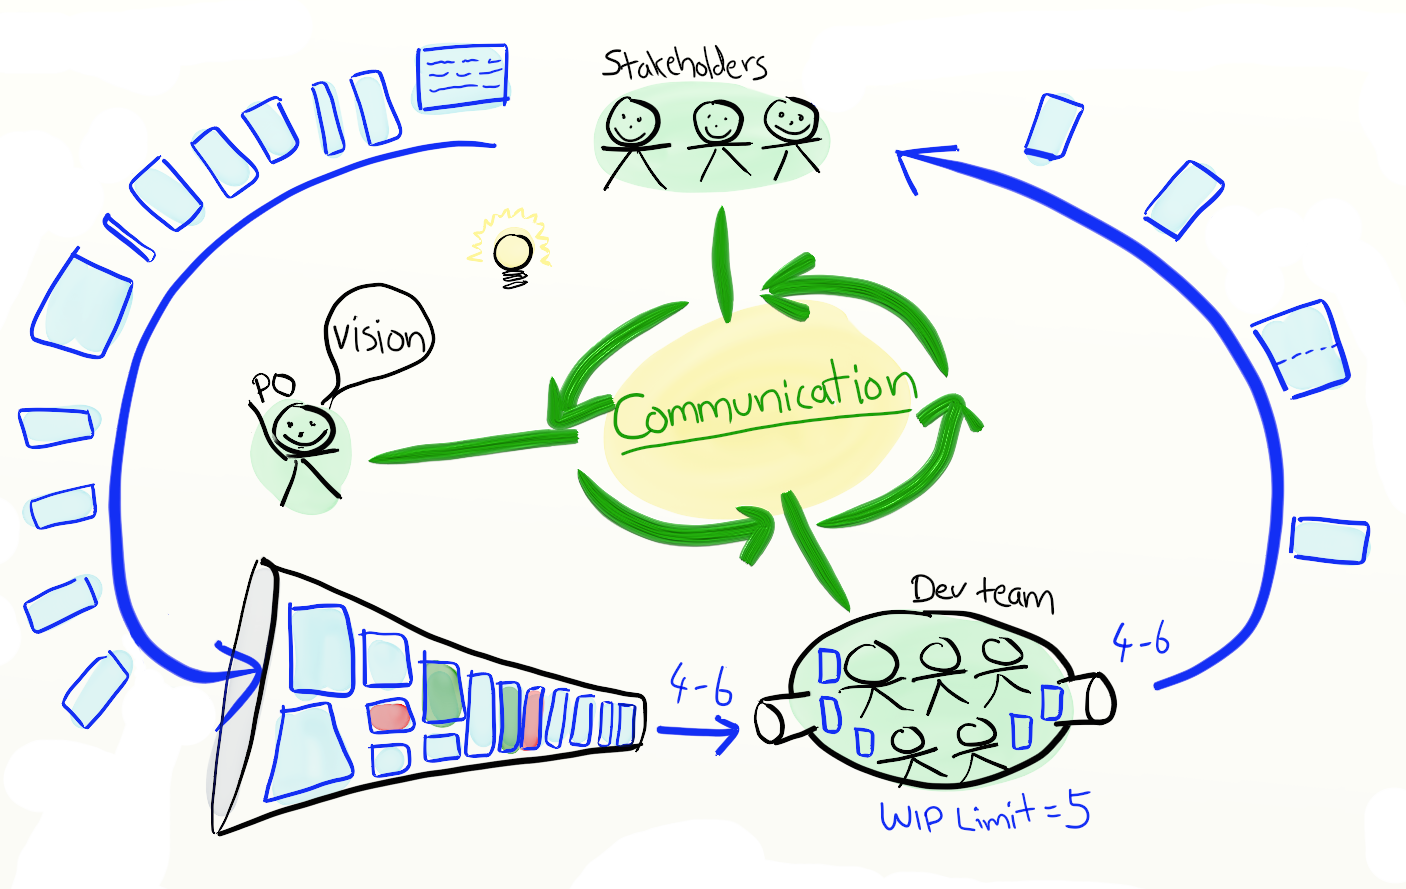 Stakeholders
Vision
PO
Communication
Dev team
4-6
4-6
WIP Limit = 5